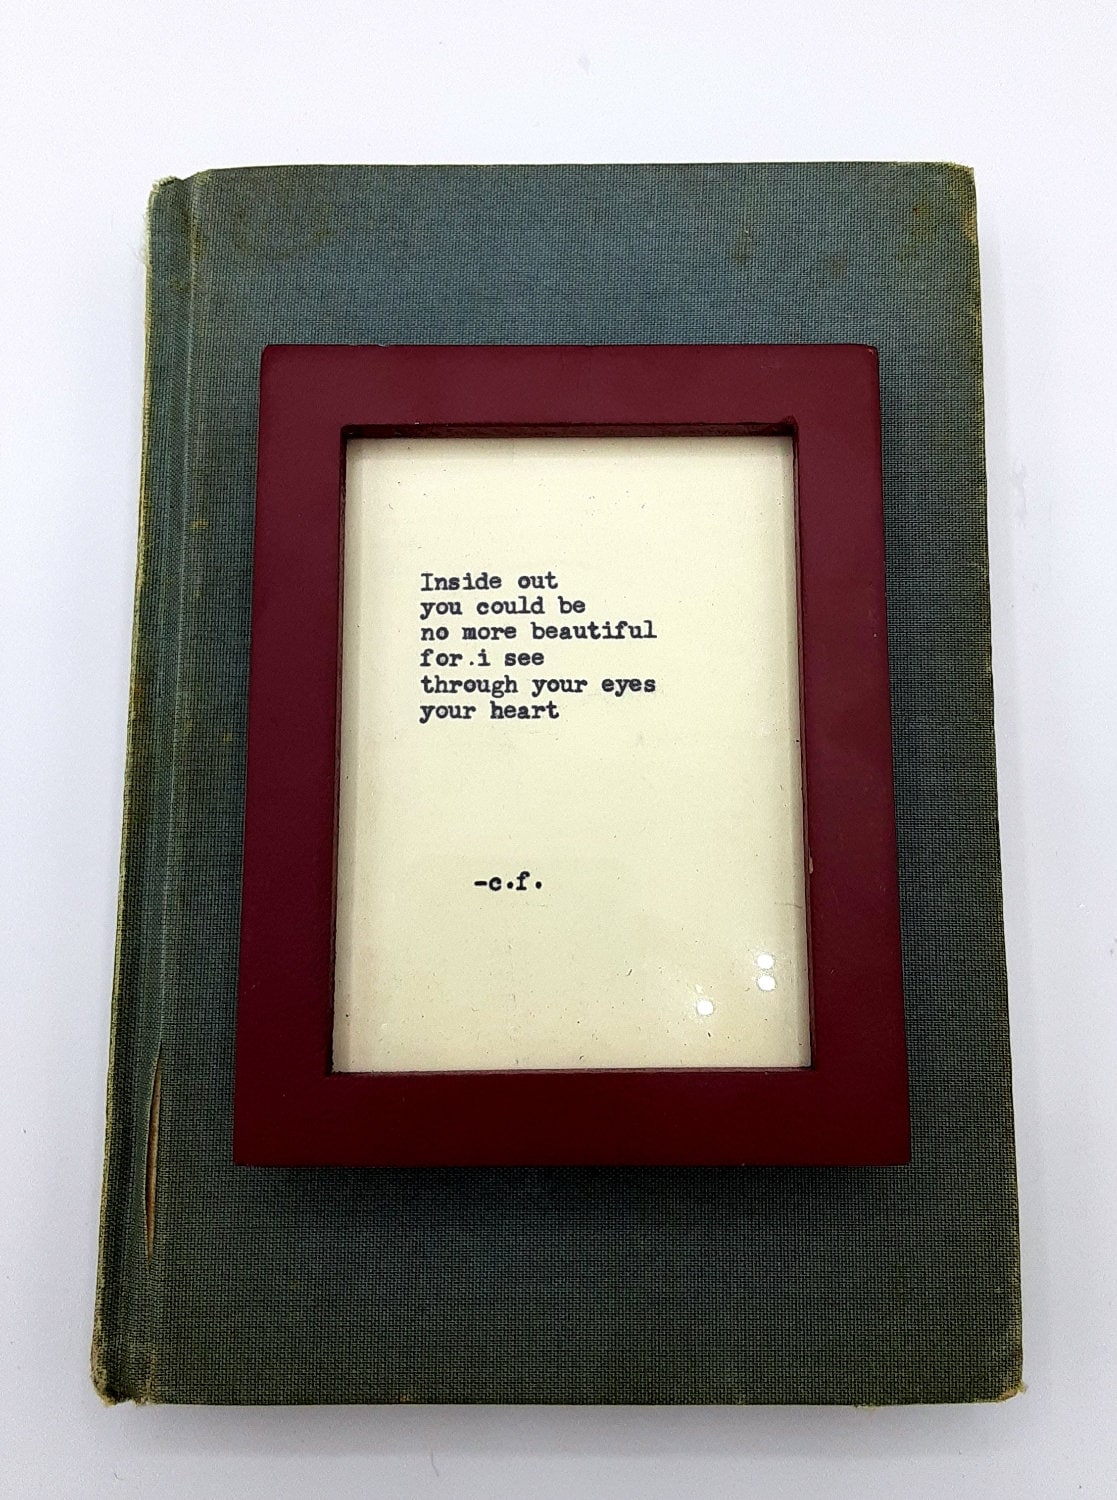 Inside out
you could be
no more beautiful
for.i see
through your eyes
your heart
-c.f.